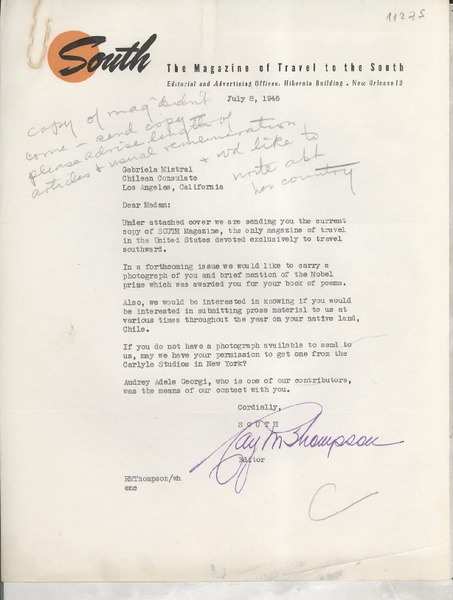 11275
South
The Magazine of Travel to the South
Editorial and Advertising Offices: Hibernia Building • New Orleans 12
July 8, 1946
copy of mag didn't
come — send copy
please advise length of
articles & usual remuneration
& wd like to
write abt
her country
Gabriela Mistral
Chilean Consulate
Los Angeles, California
Dear Madam:
Under attached cover we are sending you the current
copy of SOUTH Magazine, the only magazine of travel
in the United States devoted exclusively to travel
southward.
In a forthcoming issue we would like to carry a
photograph of you and brief mention of the Nobel
prize which was awarded you for your book of poems.
Also, we would be interested in knowing if you would
be interested in submitting prose material to us at
various times throughout the year on your native land,
Chile.
If you do not have a photograph available to send to
us, may we have your permission to get one from the
Carlyle Studios in New York?
Audrey Adele Georgi, who is one of our contributors,
was the means of our contact with you.
Cordially,
SOUTH
Ray M Thompson
Editor
RMThompson/wh
enc